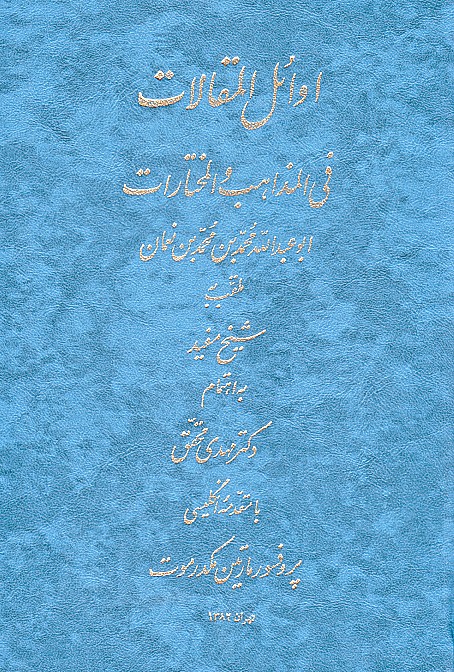 اوائل المقالات
فی المذاهب و المختارات
ابو عبدالله محمّد بن محمّد بن نعمان
ملقب به
شیخ مفید
به اهتمام
دکتر مهدی محقّق
با مقدمهٔ انگلیسی
پروفسور مارتین مکدرموت
تهران ۱۳۸۲